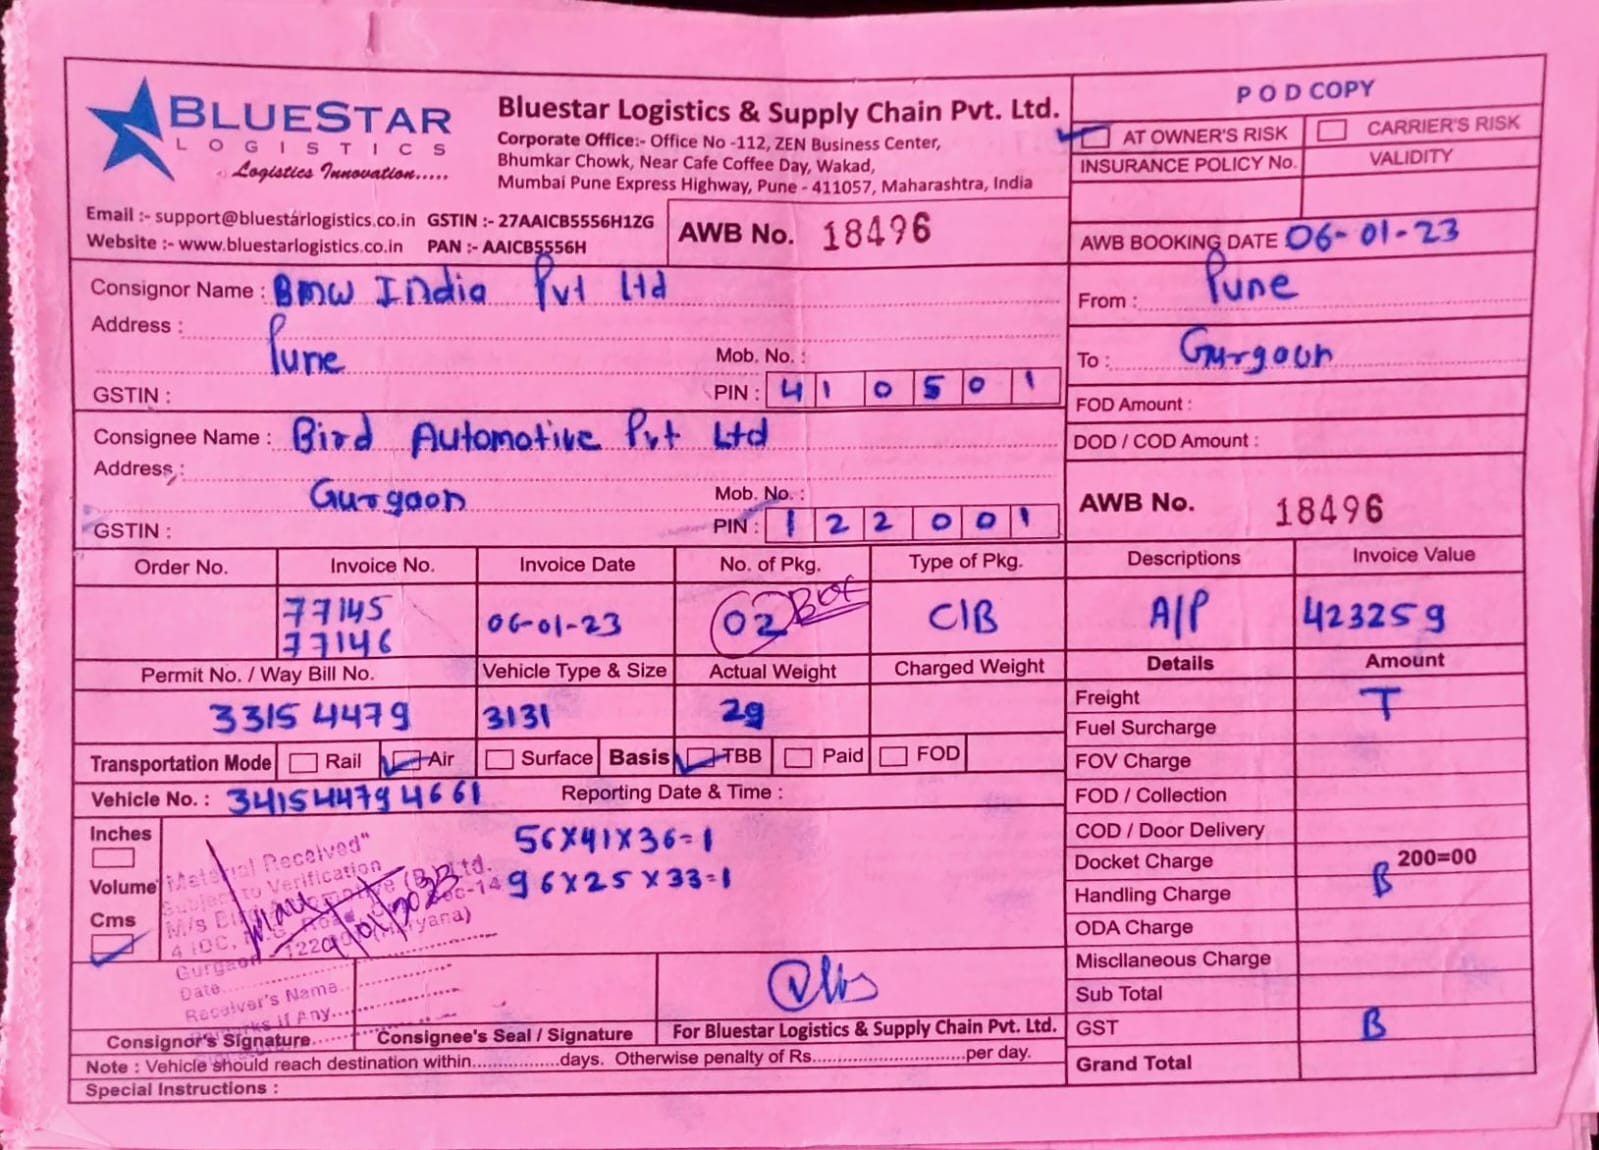 BLUESTAR
LOGISTICS
Logistics Innovation.....
Bluestar Logistics & Supply Chain Pvt. Ltd.
Corporate Office:- Office No -112, ZEN Business Center,
Bhumkar Chowk, Near Cafe Coffee Day, Wakad,
Mumbai Pune Express Highway, Pune - 411057, Maharashtra, India
Email :- support@bluestarlogistics.co.in GSTIN :- 27AAICB5556H1ZG
Website :- www.bluestarlogistics.co.in PAN :- AAICB5556H
AWB No. 18496
POD COPY
AT OWNER'S RISK CARRIER'S RISK
INSURANCE POLICY No. VALIDITY
AWB BOOKING DATE 06-01-23
Consignor Name : BMW India Pvt Ltd
Address :
Pune
Mob. No. :
GSTIN :
PIN : 410501
From : Pune
To : Gurgaon
FOD Amount :
DOD / COD Amount :
Consignee Name : Bird Automotive Pvt Ltd
Address :
Gurgaon
Mob. No. :
GSTIN :
PIN : 122001
AWB No. 18496
Order No. Invoice No. Invoice Date No. of Pkg. Type of Pkg. Descriptions Invoice Value
77145
77146
06-01-23 02 Box C/B A/P 423259
Permit No. / Way Bill No. Vehicle Type & Size Actual Weight Charged Weight Details Amount
3315 4479 3131 29
Freight T
Fuel Surcharge
Transportation Mode Rail Air Surface Basis TBB Paid FOD
FOV Charge
Vehicle No. : 341544794661 Reporting Date & Time :
FOD / Collection
Inches
Volume
Cms
56X41X36=1
96X25X33=1
Material Received"
Subject to Verification
Gurgaon - 1220 (Haryana)
Date
Receiver's Name
Remarks If Any
COD / Door Delivery
Docket Charge 200=00
Handling Charge B
ODA Charge
Miscllaneous Charge
Sub Total
GST B
Grand Total
Consignor's Signature Consignee's Seal / Signature For Bluestar Logistics & Supply Chain Pvt. Ltd.
Note : Vehicle should reach destination within..................days. Otherwise penalty of Rs...............................per day.
Special Instructions :